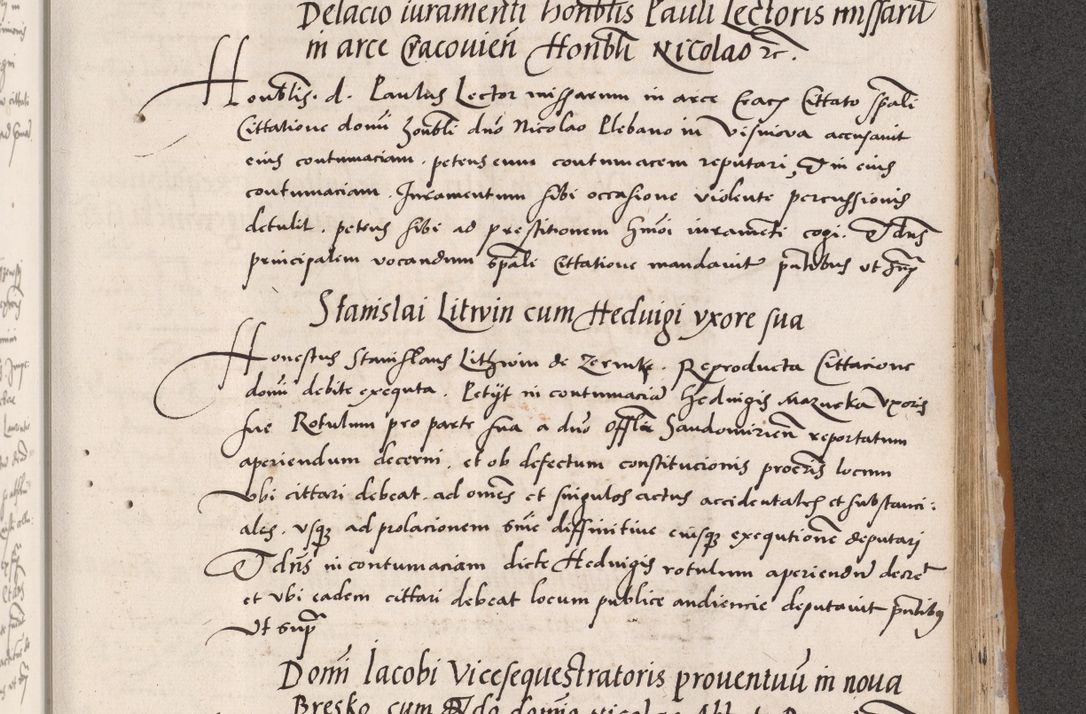 Delacio iuramenti honblis Pauli Lectoris missarū
in arce Cracouień Honbli Nicolao rc.
Honblis. d. Paulus Lector missarum in arce Crac Cittato spāli
Cittatione domī honbli dno Nicolao Plebano in Visniova accusauit
eius contumaciam. petens eum contumacem reputari, Et in eius
contumaciam Iuramentum sibi occasione violente percussionis
detulit. petens sibi ad prestitionem hmōi iuramēti cogi. Et dns
principalem vocandum spāli Cittatione mandauit pntibus vt sup
Stanislai Litwin cum Heduigi vxore sua
Honestus Stanislaus Lithwin de Reproducta Cittacione
domī debite exequta. Petijt in contumaciā Heduigis Mazurka Vxoris
sue Rotulum pro parte sua a dno Offli Sandomirień reportatum
aperiendum decerni. et ob defectum constitucionis procris locum
vbi cittari debeat. ad omēs et singulos actus accidentales et substanci:
ales. vsq ad prolacionem snie diffinitiue eiusq exequtionē deputari
Et dns in contumaciam dicte Heduigis rotulum aperiendū decret
et vbi eadem cittari debeat locum publice audiencie deputauit pntibus
vt sup
Domī Iacobi Vicesequestratoris prouentuū in noua
Bresko cum Rdo domīo Nicolao Abbate